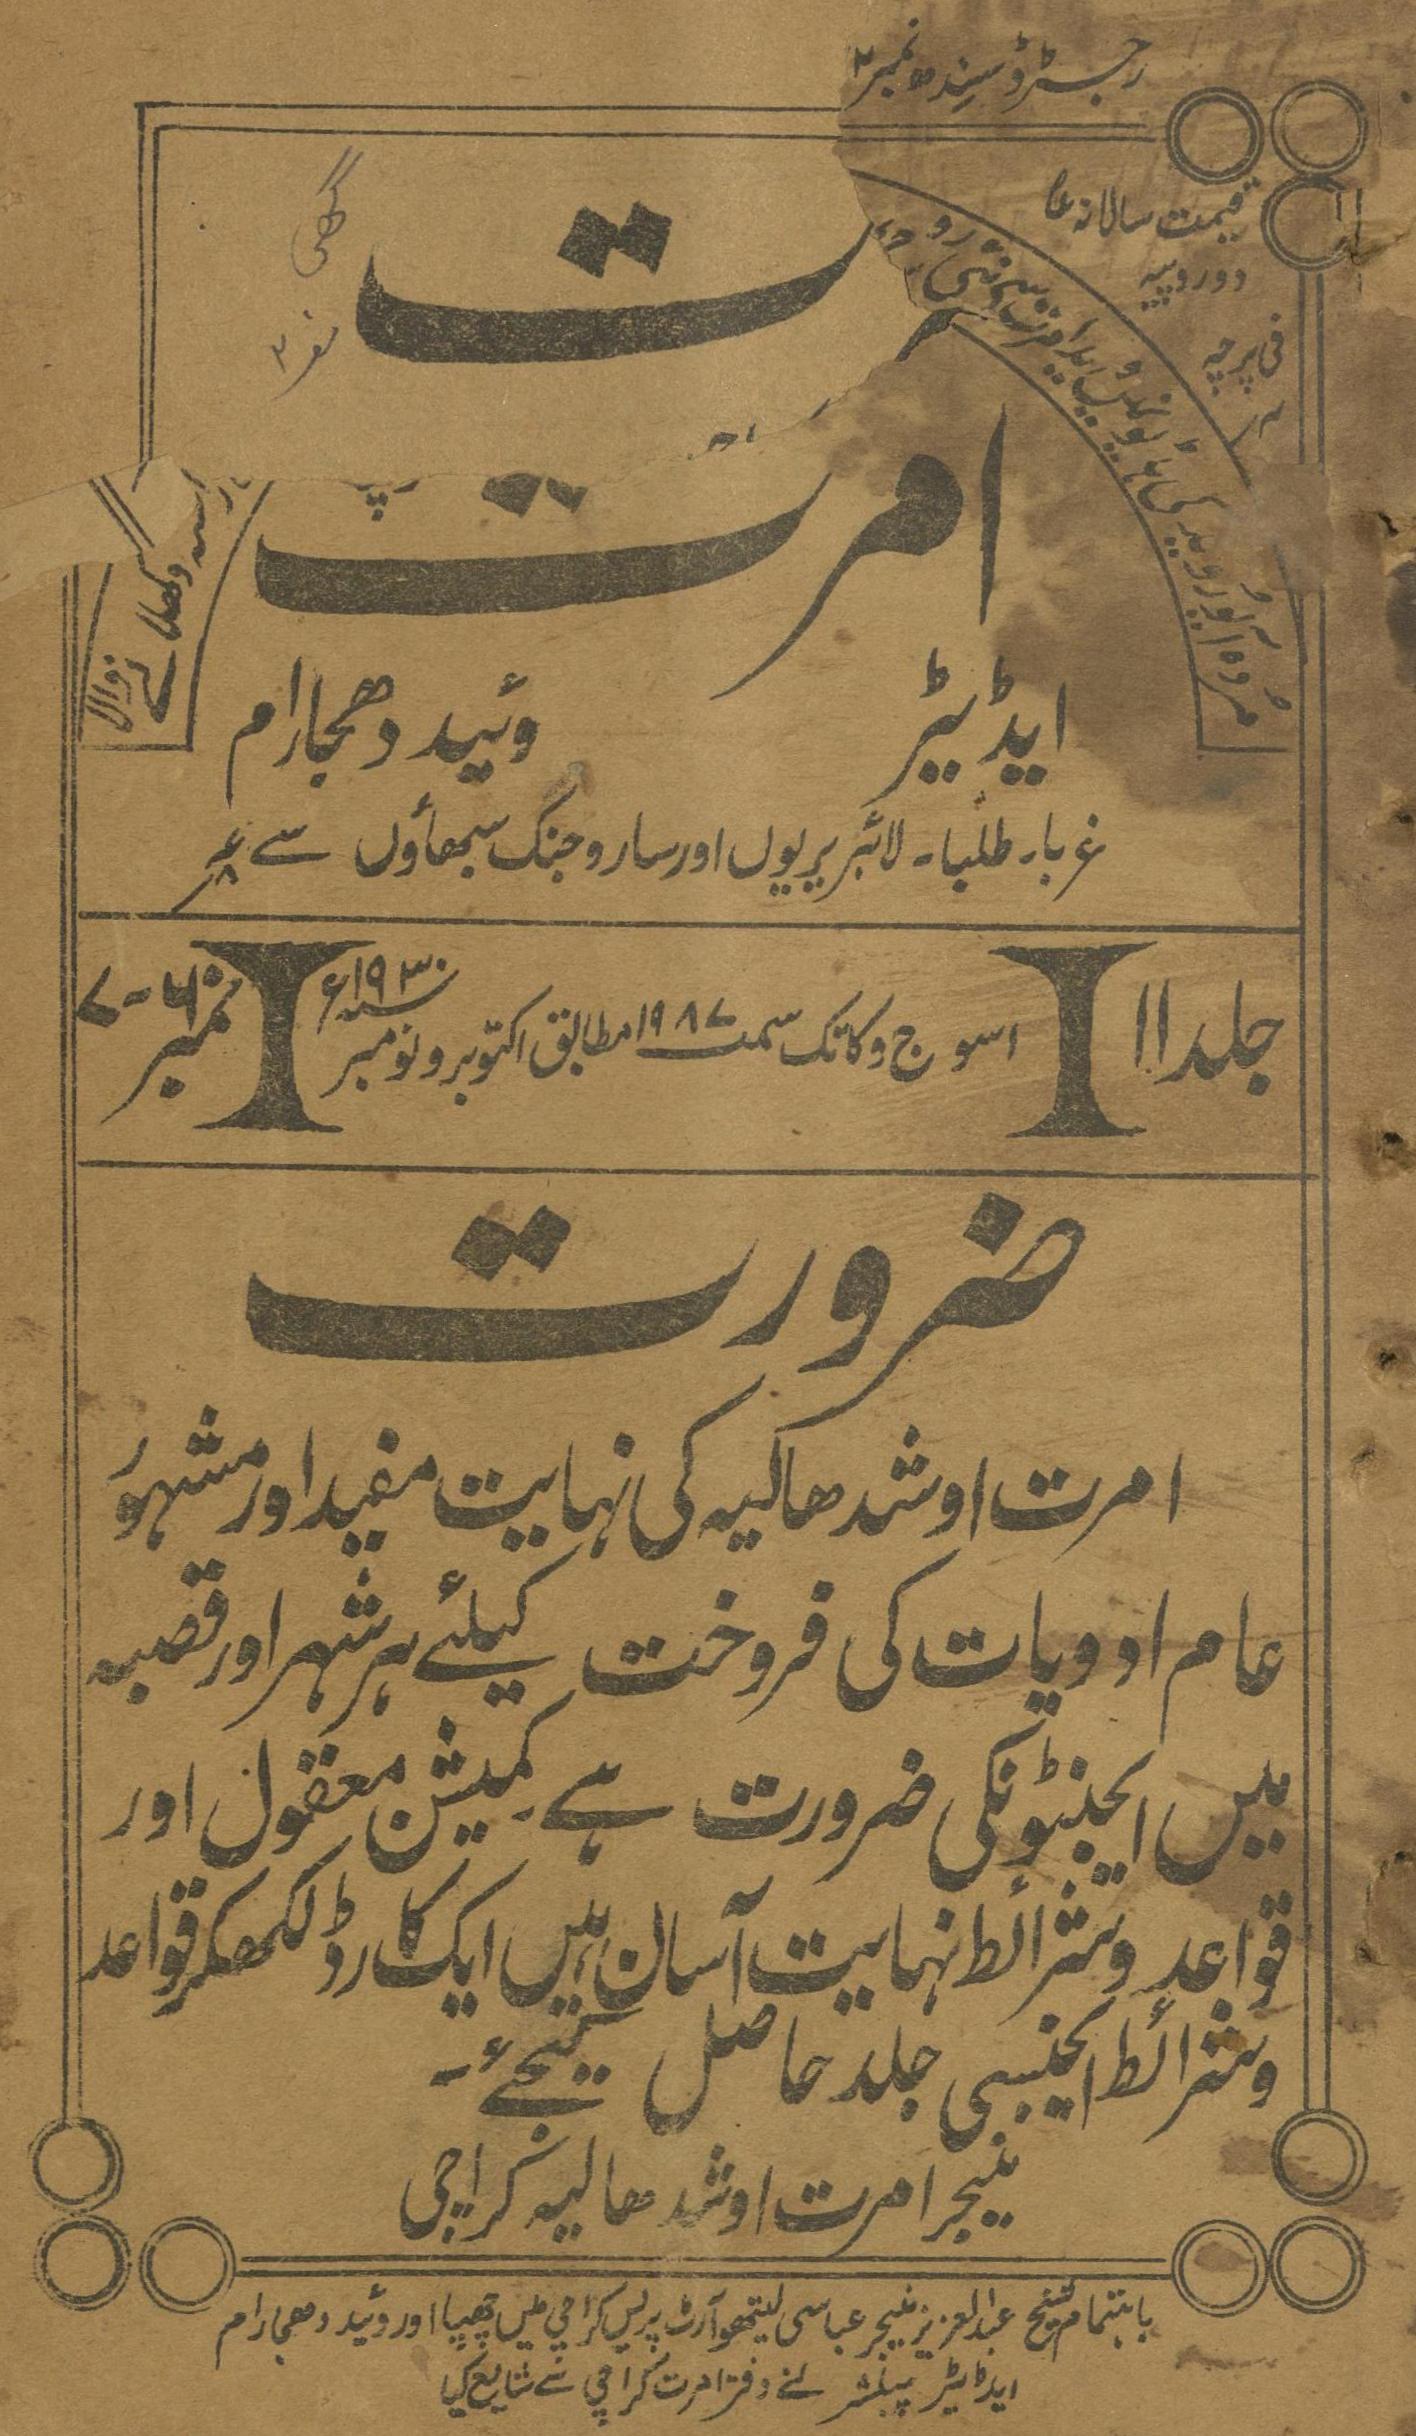 رجسٹرڈ سندھ نمبر ۲
قیمت سالانہ عا
دو روپیہ
فی پرچہ
گھی
امرت
مردہ آیوروید کی
راستہ دکھلانے والا
ایڈیٹر وئید دھجارام
غربا۔ طلبا۔ لائبریریوں اور ساروجنک سبھاؤں سے
جلد ۱۱
اسوج و کاتک سمت ۱۹۸۷ مطابق اکتوبر و نومبر سنہ ۱۹۳۰ء
نمبر ۶-۷
ضرورت
امرت اوشدھالیہ کی نہایت مفید اور مشہور
عام ادویات کی فروخت کیلئے ہر شہر اور قصبہ
میں ایجنٹونکی ضرورت ہے کمیشن معقول اور
قواعد و شرائط نہایت آسان ہیں ایک کارڈ لکھکر قواعد
و شرائط ایجنسی جلد حاصل کیجئے۔
منیجر امرت اوشدھالیہ کراچی
باہتمام شیخ عبدالعزیز منیجر عباسی لیتھو آرٹ پریس کراچی میں چھپا اور وئید دھجارام
ایڈیٹر پبلشر نے دفتر امرت کراچی سے شایع کیا